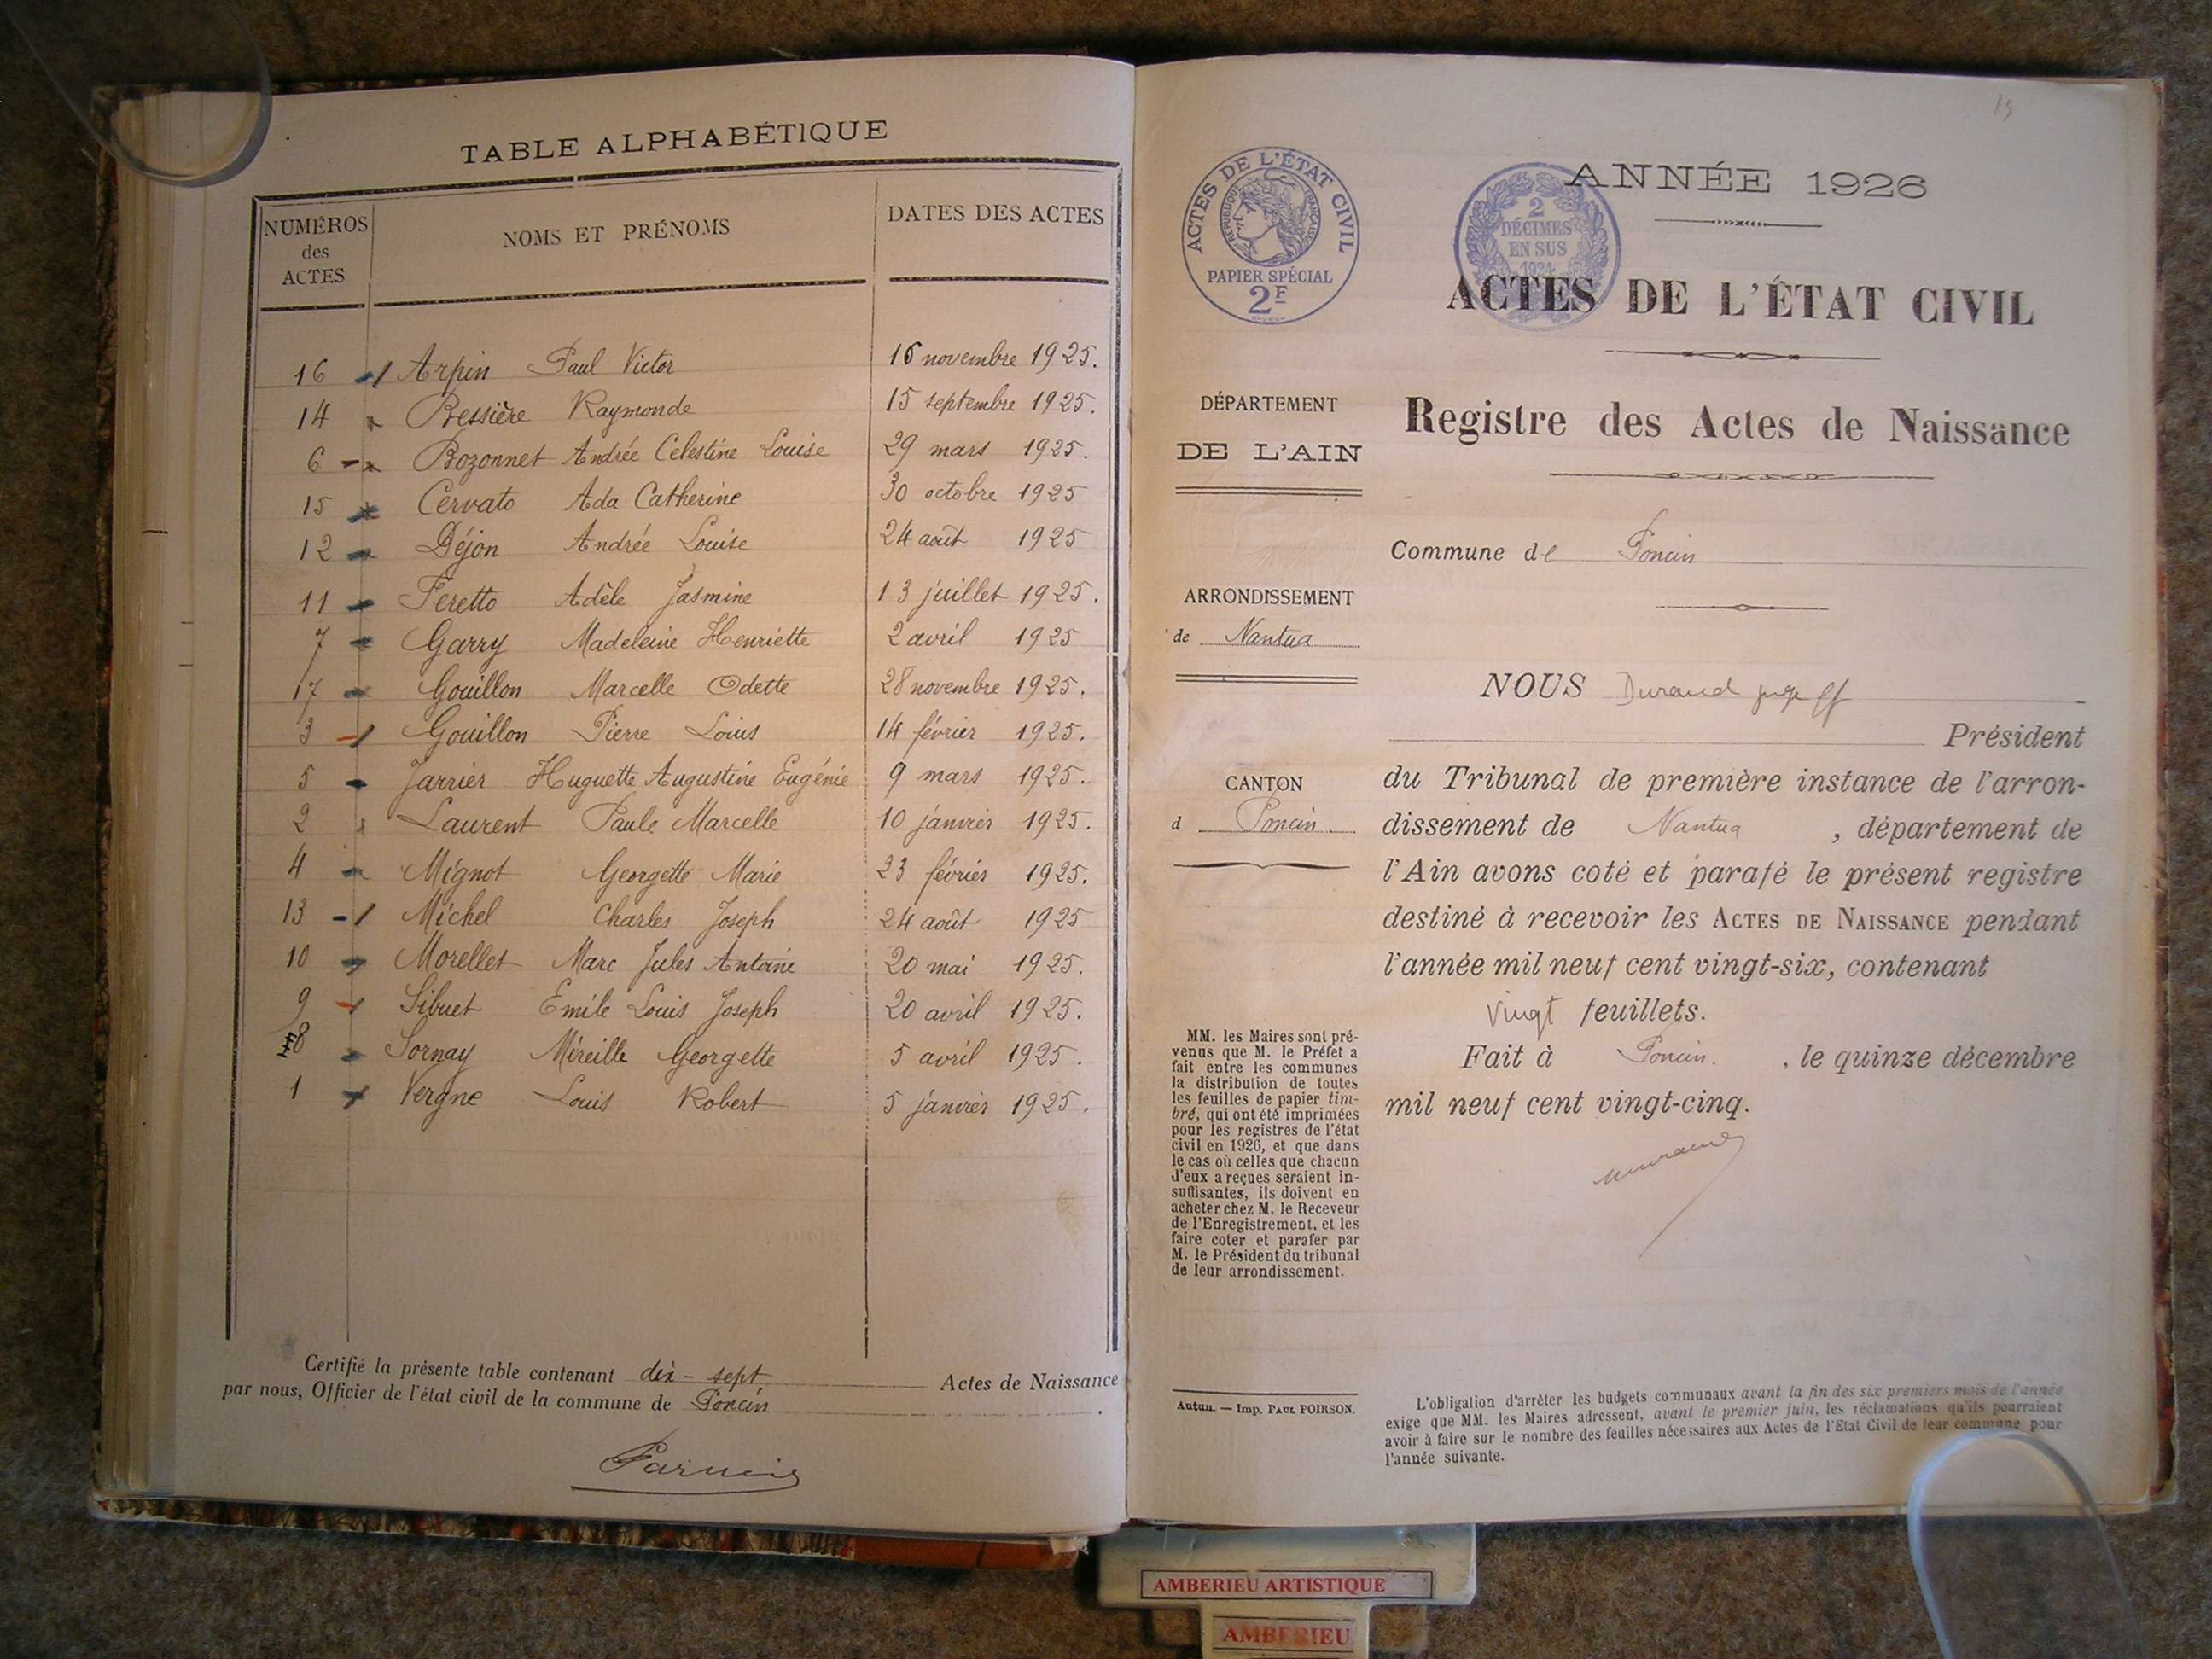 TABLE ALPHABÉTIQUE
NUMÉROS des ACTES
NOMS ET PRÉNOMS
DATES DES ACTES
16 Arpin Paul Victor 16 novembre 1925.
14 Bessière Raymonde 15 septembre 1925.
6 Bozonnet Andrée Celestine Louise 29 mars 1925.
15 Cervato Ada Catherine 30 octobre 1925
12 Déjon Andrée Louise 24 août 1925
11 Feretto Adèle Jasmine 13 juillet 1925.
7 Garry Madeleine Henriette 2 avril 1925
17 Gouillon Marcelle Odette 28 novembre 1925.
3 Gouillon Pierre Louis 14 février 1925.
5 Jarrier Huguette Augustine Eugénie 9 mars 1925.
2 Laurent Paule Marcelle 10 janvier 1925.
4 Mignot Georgette Marie 23 février 1925.
13 Michel Charles Joseph 24 août 1925
10 Morellet Marc Jules Antoine 20 mai 1925.
9 Sibuet Emile Louis Joseph 20 avril 1925.
8 Sornay Mireille Georgette 5 avril 1925.
1 Vergne Louis Robert 5 janvier 1925.
Certifié la présente table contenant dix-sept Actes de Naissance
par nous, Officier de l'état civil de la commune de Poncin.
13
ACTES DE L'ÉTAT CIVIL
RÉPUBLIQUE FRANÇAISE
PAPIER SPÉCIAL
2F
2
DÉCIMES
EN SUS
1924
ANNÉE 1926
ACTES DE L'ÉTAT CIVIL
Registre des Actes de Naissance
DÉPARTEMENT
DE L'AIN
Commune de Poncin
ARRONDISSEMENT
de Nantua
CANTON
d Poncin
NOUS Durand juge
Président
du Tribunal de première instance de l'arron-
dissement de Nantua, département de
l'Ain avons coté et parafé le présent registre
destiné à recevoir les ACTES DE NAISSANCE pendant
l'année mil neuf cent vingt-six, contenant
vingt feuillets.
Fait à Poncin., le quinze décembre
mil neuf cent vingt-cinq.
MM. les Maires sont pré-
venus que M. le Préfet a
fait entre les communes
la distribution de toutes
les feuilles de papier tim-
bré, qui ont été imprimées
pour les registres de l'état
civil en 1926, et que dans
le cas où celles que chacun
d'eux a reçues seraient in-
suffisantes, ils doivent en
acheter chez M. le Receveur
de l'Enregistrement, et les
faire coter et parafer par
M. le Président du tribunal
de leur arrondissement.
Autun. — Imp. PAUL POIRSON.
L'obligation d'arrêter les budgets communaux avant la fin des six premiers mois de l'année
exige que MM. les Maires adressent, avant le premier juin, les réclamations qu'ils pourraient
avoir à faire sur le nombre des feuilles nécessaires aux Actes de l'Etat Civil de leur commune pour
l'année suivante.
AMBERIEU ARTISTIQUE
AMBERIEU